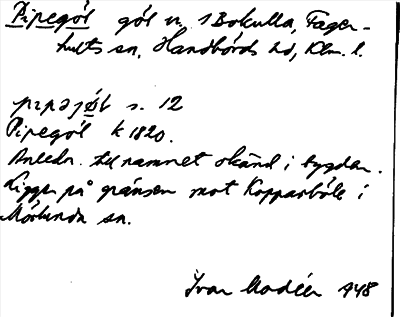 Pipegöl göl n. 1 Bokulla, Fager-
hults sn, Handbörds hd, Klm. l.
s. 12
Pipegöl k 1820.
Anledn. till namnet okänd i bygden.
Ligger på gränsen mot Kopparböle i
Mörlunda sn.
Ivar Modéer 1948